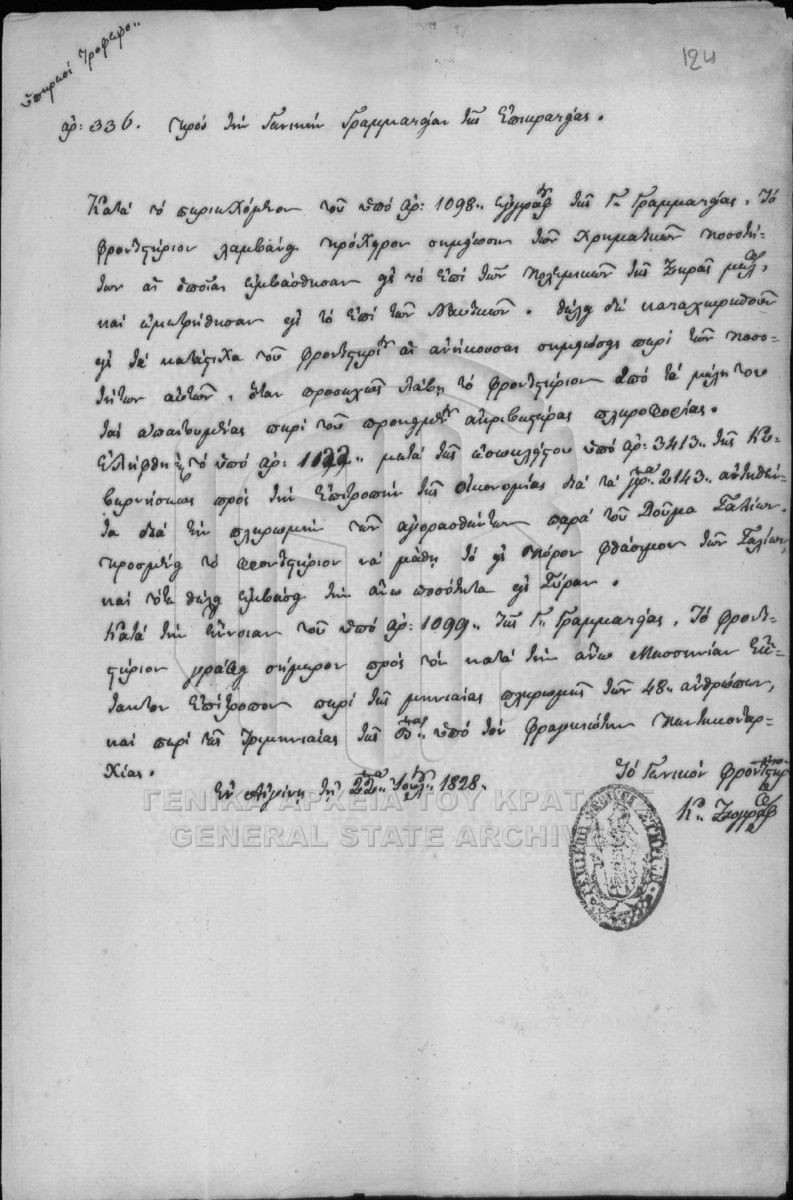 124
ἀρ: 336. Πρὸς τὴν Γενικὴν Γραμματείαν τῆς Ἐπικρατείας.
Κατὰ τὸ περιεχόμενον τοῦ ὑπὸ ἀρ: 1098 ἐγγράφου τῆς Γ. Γραμματείας, Τὸ
φροντιστήριον λαμβάνει πρόχειρον σημείωσιν τῶν χρηματικῶν ποσοτή-
των αἱ ὁποῖαι ἐμβάσθησαν εἰς τὸ ἐπὶ τῶν Πολεμικῶν τῆς
καὶ ἐμετρήθησαν εἰς τὸ ἐπὶ τῶν Ναυτικῶν. θέλει δὲ καταχωρηθοῦν
εἰς τὰ κατάστιχα τοῦ φροντιστηρίου αἱ ἀνήκουσαι σημειώσεις περὶ τῶν ποσο-
τήτων αὐτῶν, ὅταν προσεχῶς λάβῃ τὸ φροντιστήριον ἀπὸ τὰ μέλη του
τὰς ἀπαιτουμένας περὶ τοῦ προκειμένου ἀκριβεστέρας πληροφορίας.
Ἐλήφθη τὸ ὑπὸ ἀρ: μετὰ τῆς ἐσωκλείστου ὑπὸ ἀρ: 3413 τῆς Κυ-
βερνήσεως πρὸς τὴν Ἐπιτροπὴν τῆς Οἰκονομίας διὰ τὰ 2143
τα διὰ τὴν πληρωμὴν τῶν ἀγορασθέντων παρὰ τοῦ Δούμα
προσμένει τὸ φροντιστήριον νὰ μάθῃ τὸ εἰς Πόρον φθάσιμον τῶν
καὶ τότε θέλει ἐμβάσει τὴν ἄνω ποσότητα εἰς Σύραν.
Κατὰ τὴν ἔννοιαν τοῦ ὑπὸ ἀρ: 1099 τῆς Γ. Γραμματείας, Τὸ φροντι-
στήριον γράφει σήμερον πρὸς τὸν κατὰ τὴν ἄνω Μεσσηνίαν Ἔκ-
τακτον Ἐπίτροπον περὶ τῆς μηνιαίας πληρωμῆς τῶν 48 ἀνθρώπων,
καὶ περὶ τῆς τριμηνιαίας τῆς ὑπὸ τὸν Πεντηκονταρ-
χίας.
Ἐν Αἰγίνῃ τῇ 22 1828.
Τὸ Γενικὸν Φροντιστήριον
Κ. Ζωγράφος
ΓΕΝΙΚΑ ΑΡΧΕΙΑ ΤΟΥ ΚΡΑΤΟΥΣ
GENERAL STATE ARCHIVES